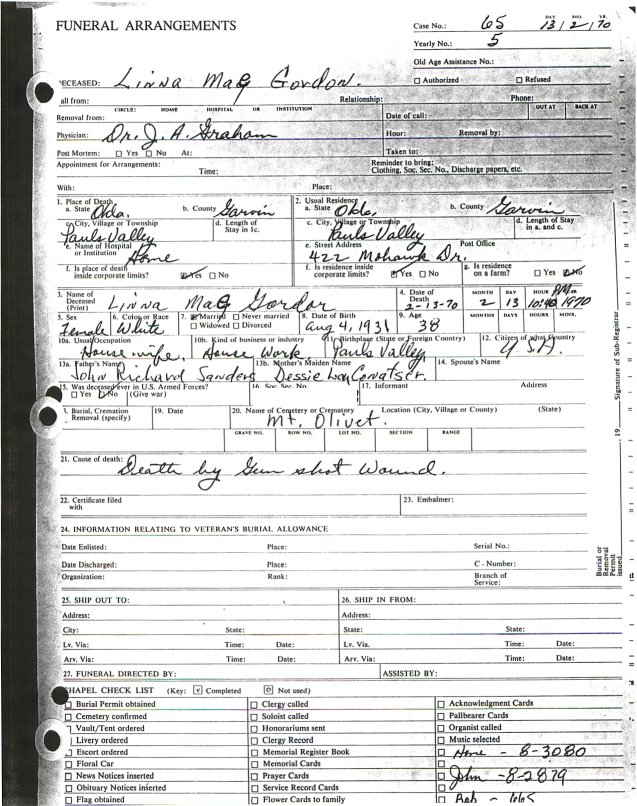 FUNERAL ARRANGEMENTS
Case No.: 65 DAY MO. YR. 13/2/70
Yearly No.: 5
Old Age Assistance No.:
☐ Authorized ☐ Refused
DECEASED: Linna Mae Gordon.
all from: Relationship: Phone:
CIRCLE: HOME HOSPITAL OR INSTITUTION OUT AT BACK AT
Removal from: Date of call:
Physician: Dr. J. A. Graham Hour: Removal by:
Post Mortem: ☐ Yes ☐ No At: Taken to:
Appointment for Arrangements: Time: Reminder to bring: Clothing, Soc. Sec. No., Discharge papers, etc.
With: Place:
1. Place of Death
a. State Okla. b. County Garvin
c. City, Village or Township Pauls Valley d. Length of Stay in 1c.
e. Name of Hospital or Institution Home
f. Is place of death inside corporate limits? ☑ Yes ☐ No
2. Usual Residence
a. State Okla. b. County Garvin
c. City, Village or Township Pauls Valley d. Length of Stay in a. and c.
e. Street Address 422 Mohawk Dr. Post Office
f. Is residence inside corporate limits? ☑ Yes ☐ No g. Is residence on a farm? ☐ Yes ☑ No
3. Name of Deceased (Print) Linna Mae Gordon 4. Date of Death 2-13-70 MONTH 2 DAY 13 HOUR 10:40 PM 1970
5. Sex Female 6. Color or Race White 7. ☑ Married ☐ Never married ☐ Widowed ☐ Divorced 8. Date of Birth Aug 4, 1931 9. Age 38 MONTHS DAYS HOURS MINS.
10a. Usual Occupation Housewife. 10b. Kind of business or industry House Work 11. Birthplace (State or Foreign Country) Pauls Valley, 12. Citizen of what Country U.S.A.
13a. Father's Name John Richard Sanders 13b. Mother's Maiden Name Dessie 14. Spouse's Name
15. Was deceased ever in U.S. Armed Forces? ☐ Yes ☑ No (Give war) 16. Soc. Sec. No. 17. Informant Address
18. Burial, Cremation Removal (specify) 19. Date 20. Name of Cemetery or Crematory Mt. Olivet. Location (City, Village or County) (State)
GRAVE NO. ROW NO. LOT NO. SECTION RANGE
21. Cause of death: Death by Gun shot Wound.
22. Certificate filed with 23. Embalmer:
24. INFORMATION RELATING TO VETERAN'S BURIAL ALLOWANCE
Date Enlisted: Place: Serial No.:
Date Discharged: Place: C - Number:
Organization: Rank: Branch of Service:
25. SHIP OUT TO: 26. SHIP IN FROM:
Address: Address:
City: State: State: State:
Lv. Via: Time: Date: Lv. Via. Time: Date:
Arv. Via: Time: Date: Arv. Via: Time: Date:
27. FUNERAL DIRECTED BY: ASSISTED BY:
CHAPEL CHECK LIST (Key: ☑ Completed ☐ Not used)
☐ Burial Permit obtained ☐ Clergy called ☐ Acknowledgment Cards
☐ Cemetery confirmed ☐ Soloist called ☐ Pallbearer Cards
☐ Vault/Tent ordered ☐ Honorariums sent ☐ Organist called
☐ Livery ordered ☐ Clergy Record ☐ Music selected
☐ Escort ordered ☐ Memorial Register Book ☐ Home - 8-3080
☐ Floral Car ☐ Memorial Cards ☐
☐ News Notices inserted ☐ Prayer Cards ☐ John - 8-2879
☐ Obituary Notices inserted ☐ Service Record Cards ☐
☐ Flag obtained ☐ Flower Cards to family ☐ - 665
Burial or Removal Permit issued , 19 Signature of Sub-Registrar